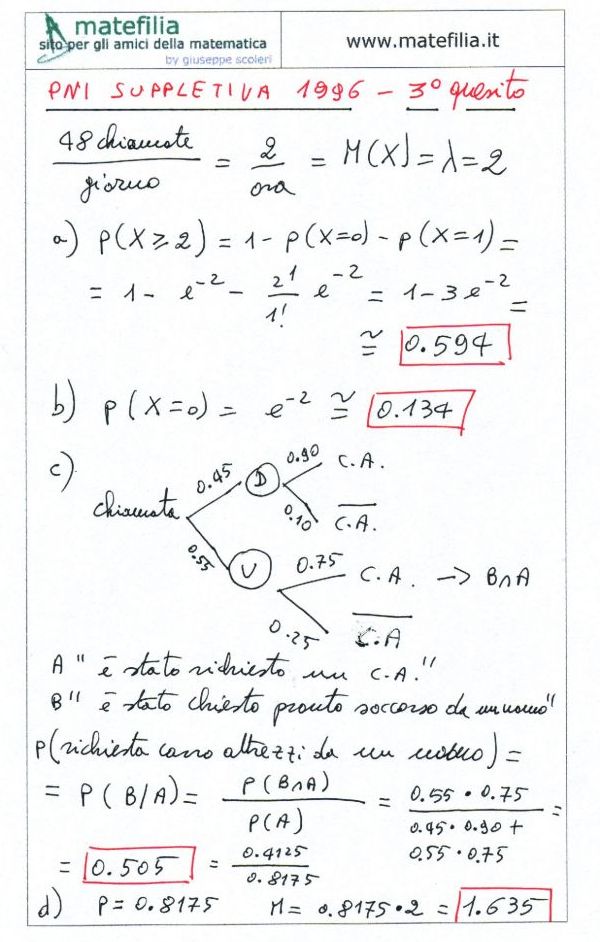 matefilia
sito per gli amici della matematica
by giuseppe scoleri
www.matefilia.it
PNI SUPPLETIVA 1996 - 3° quesito
48 chiamate / giorno = 2 / ora = M(X) = λ = 2
a) p(X ≥ 2) = 1 - p(X=0) - p(X=1) =
= 1 - e^-2 - 2^1/1! e^-2 = 1 - 3e^-2 =
≅ 0.594
b) p(X=0) = e^-2 ≅ 0.134
c)
chiamata
0.45 D 0.90 C.A.
0.10 \overline{C.A.}
0.55 U 0.75 C.A. → B∩A
0.25 \overline{C.A}
A " è stato richiesto un C.A."
B " è stato chiesto pronto soccorso da un uomo"
p(richiesta carro attrezzi da un uomo) =
= P(B/A) = P(B∩A) / P(A) = 0.55 · 0.75 / 0.45 · 0.90 + 0.55 · 0.75 =
= 0.505 = 0.4125 / 0.8175
d) P = 0.8175 M = 0.8175 · 2 = 1.635